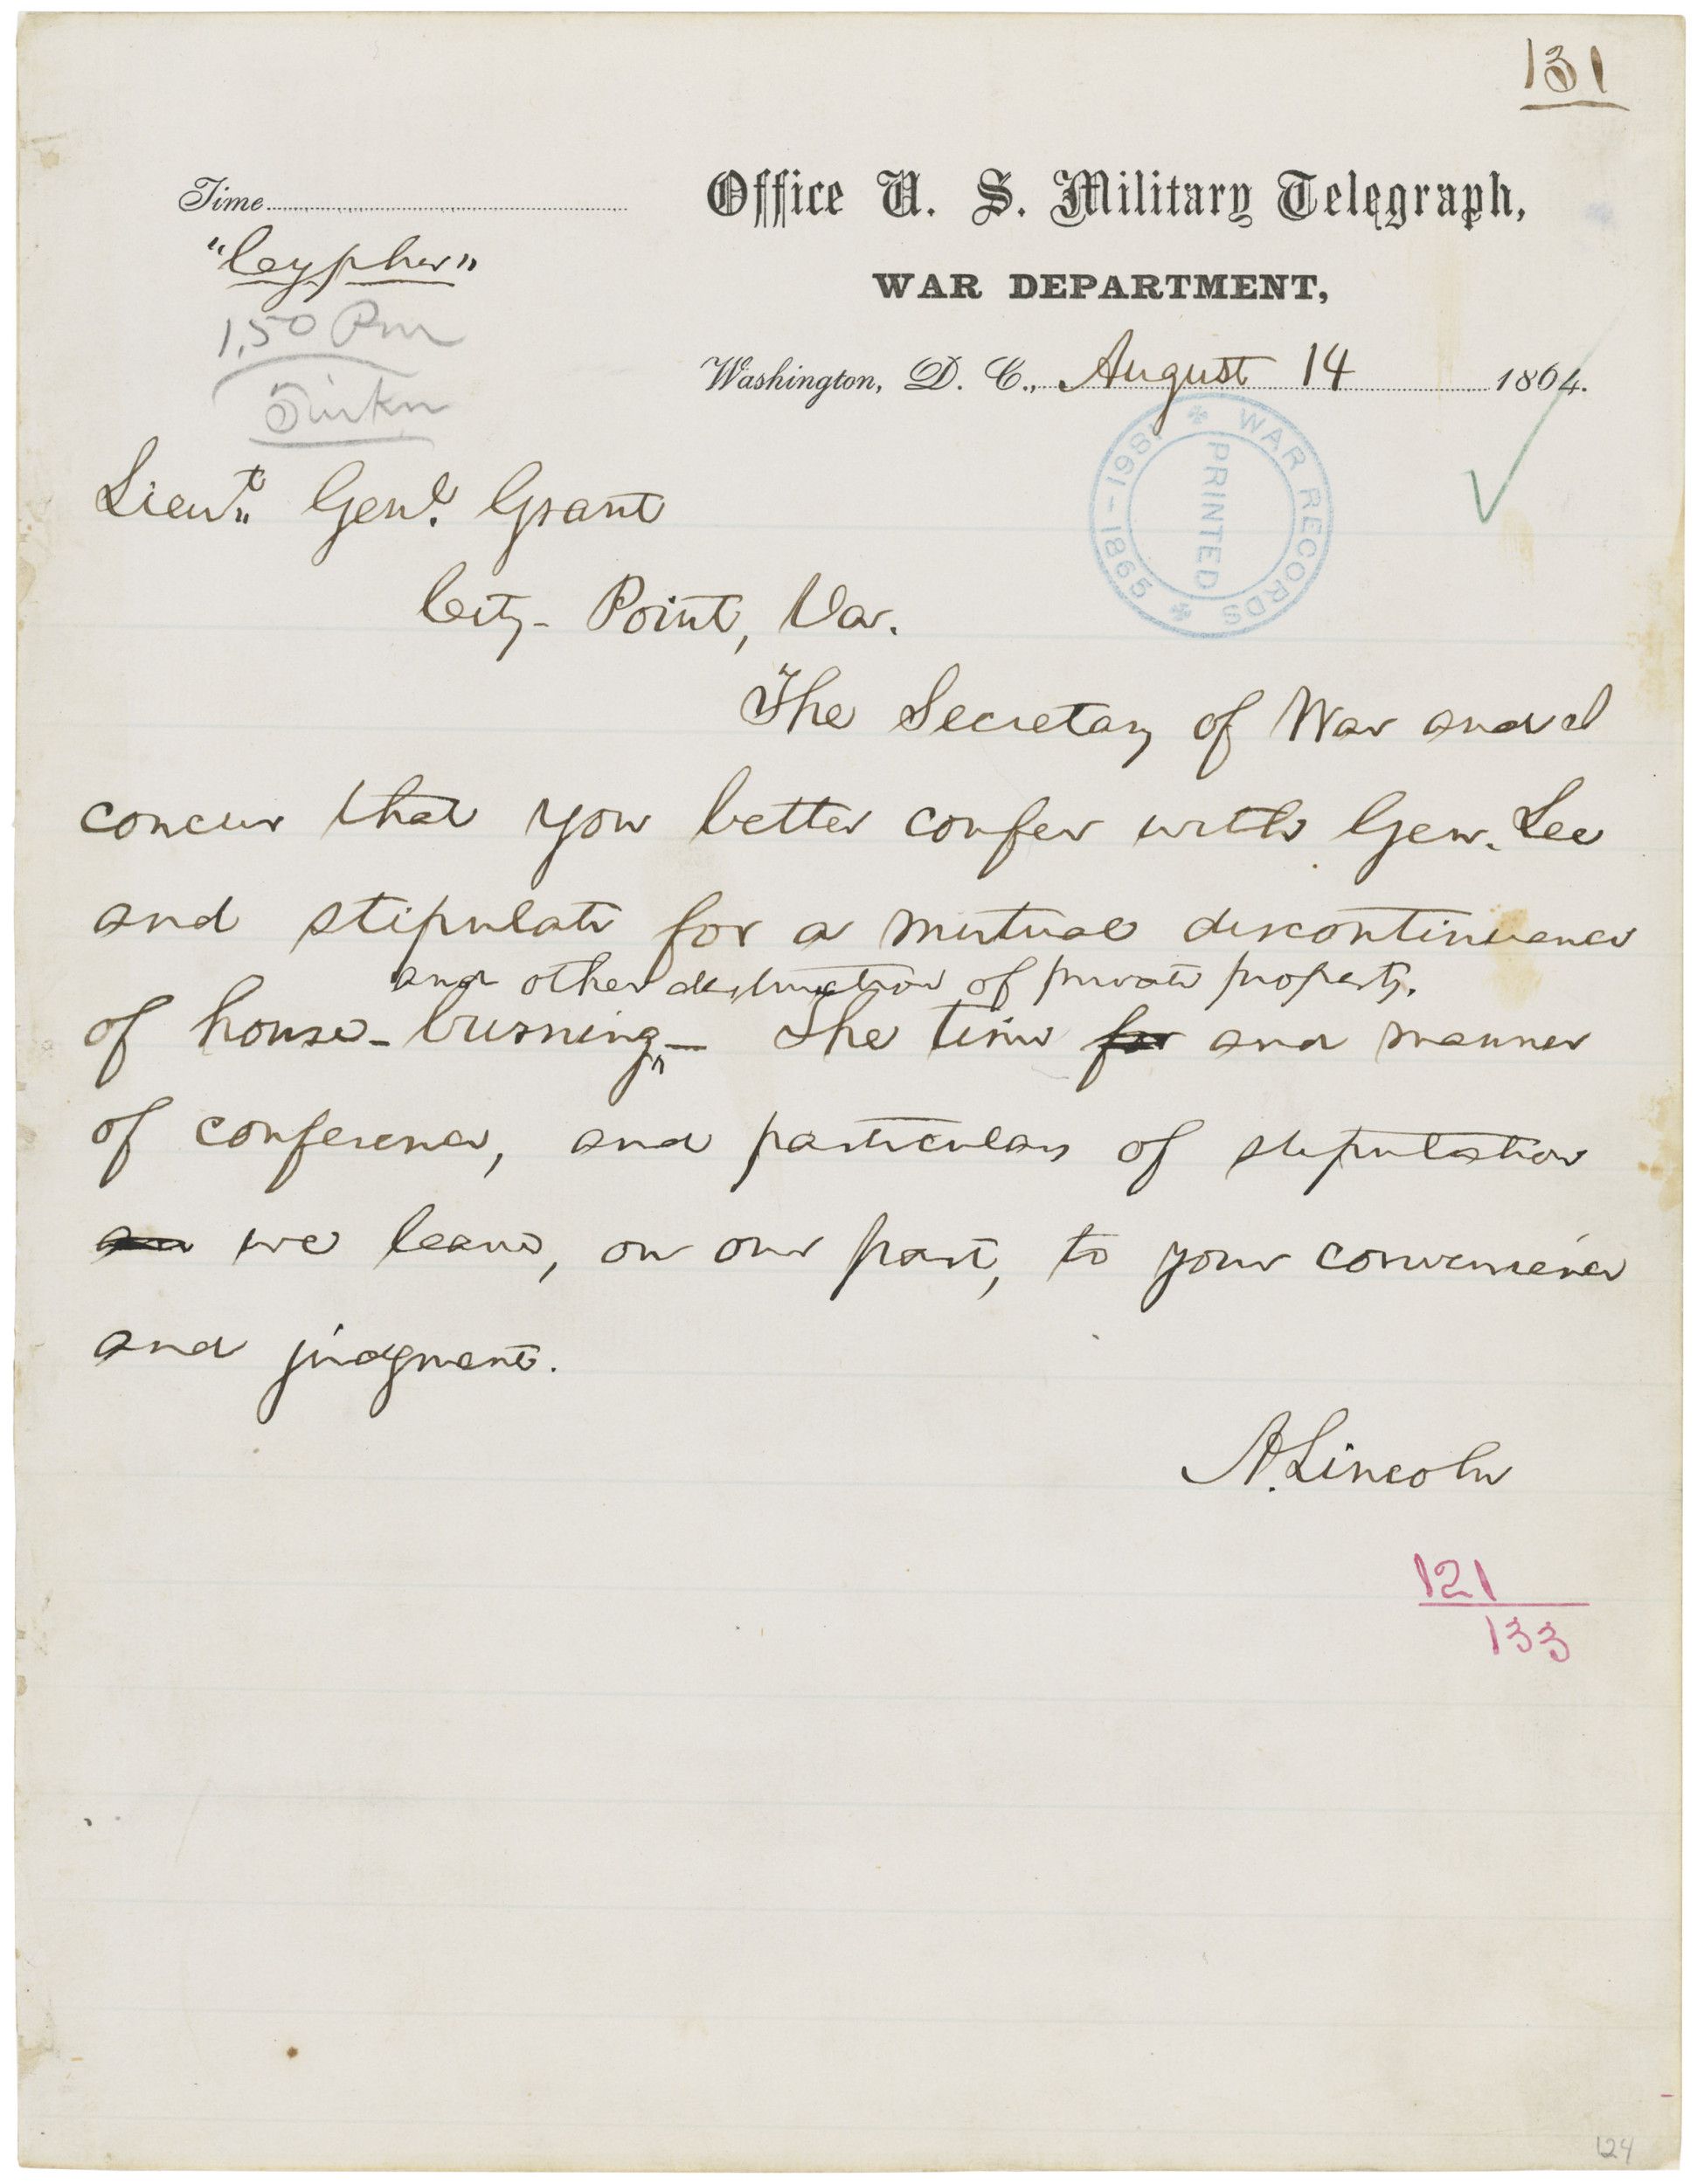 131
Time
Office U. S. Military Telegraph,
"Cypher"
WAR DEPARTMENT,
1.50 Pm
Washington, D. C., August 14 1864.
WAR RECORDS 1861-1865
PRINTED
Lieut. Genl. Grant
City-Point, Va.
The Secretary of War and I
concur that you better confer with Gen. Lee
and stipulate for a mutual discontinuance
and other destruction of private property.
of house-burning — The time for and manner
of conference, and particulars of stipulation
we leave, on our part, to your convenience
and judgment.
A. Lincoln
121
133
124